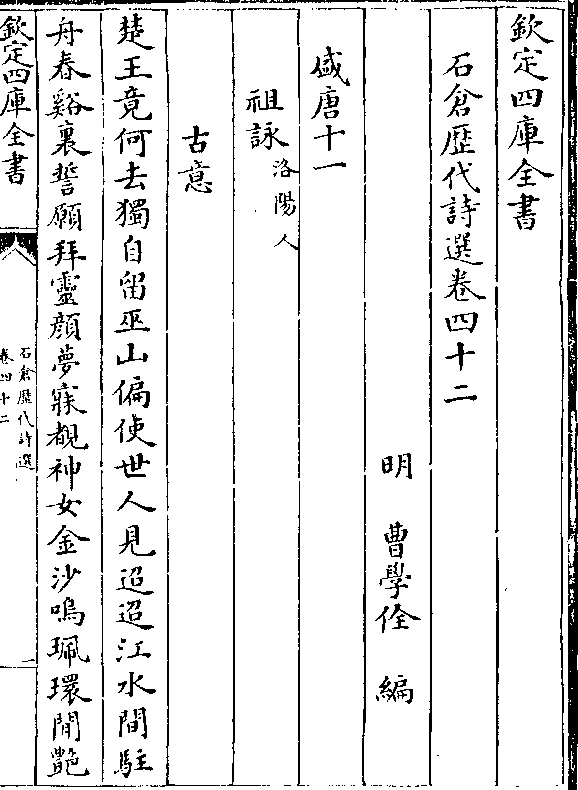 欽定四庫全書
石倉歴代詩選卷四十二
明　曹學佺　編
盛唐十一
祖詠洛陽人
古意
楚王竟何去獨自留巫山偏使世人見迢迢江水間駐
舟春谿裏誓願拜靈顔夢寐覩神女金沙鳴珮環閒艶
欽定四庫全書
石倉歴代詩選
卷四十二
一